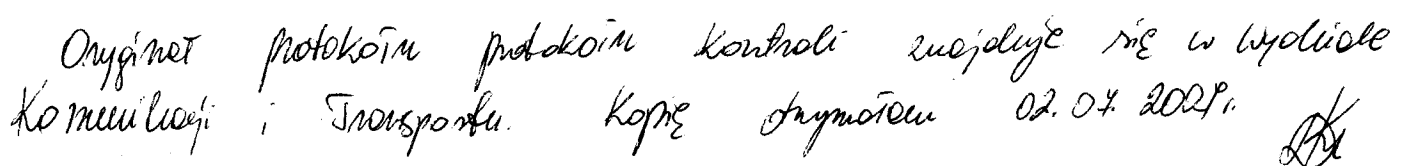 Oryginał protokołu protokołu kontroli znajduje się w Wydziale
Komunikacji i Transportu. Kopię otrzymałam 02.07.2021r.